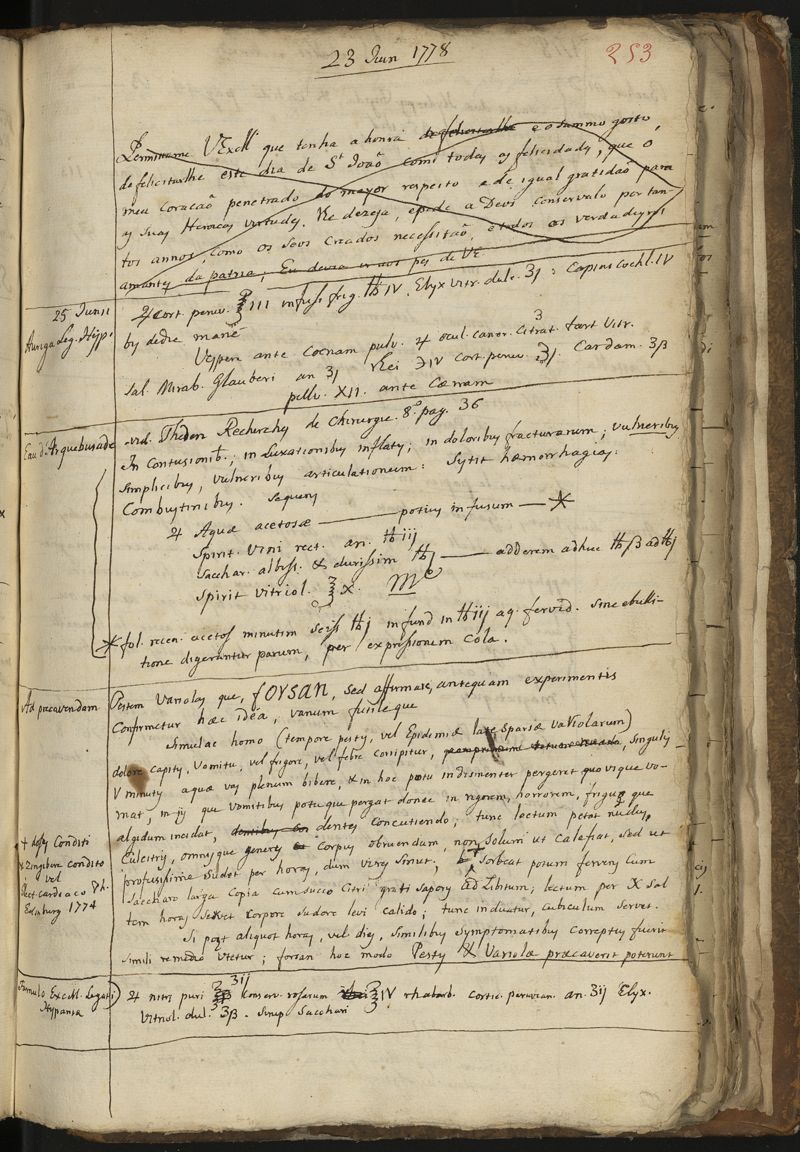 23 Jun 1778
253
Permitame V Excꝭ que tenha a honra de felicitarlhe e o summo gosto,
de felicitarlhe este dia de St Joaõ com todas as felicidades, que o
meu Coracaõ penetrado do mayor respeito e de igual gratidaõ para
as suas Heroicas virtudes. lhe dezeja, e pede a Deos conservalo por tan-
tos annos, como os seos Creados necessitaõ, e todos os verdadeyros
amantes da patria; Eu devia ir aos pes de VE
25 Junii
Auriga Leg. Hisp.
♃ Cort. peruv. ℥III infus frig. ℔IV. Elyx vitr. dulc. ʒj : Capiat Cochl. IV
bis de die mane
Vespere ante Coenam pulv. ♃ ocul. cancr. Citrat. tart vitr.
Sal. Mirab. Glauberi an ʒj Rhei ℈IV Cort. peruv. ʒj. Cardam. ʒβ
pill. XII. ante Caenam
Eau d'Arquebusade
vid. Theden Recherches de Chirurgie. 8º pag. 36
In Contusionib.; in Luxationibus inflatis; in doloribus fracturarum; vulneribus
simplicibus, vulneribus articulationum: Sistit haemorrhagias.
Combustinibus. Sequens
♃ Aquae acetosae ——— potius infusum —— *
Spirit. Vini rect. an. ℔iij
Sacchar. albiss. & durissim ℔j —— adderem adhuc ℔β ad ℔j
Spirit vitriol. ℥x. M
* fol. recen. acetos minutim sciss ℔j infund in ℔iij aq. fervid. sine ebulli-
tione digerantur parum, per expressionem Cola.
Ad praecavendam
Pestem Variolas que, forsan, sed affirmare, antequam experimentis
Confirmetur haec idéa, vanum futileque
Simulac homo (tempore pestis, vel Epidemiae late sparsae variolarum)
dolore capitis, Vomitu, vel frigore, vel febre corripitur, singulis
V minutis aquae vas plenum bibere, & in hoc potu indesinenter pergeret quousque vo-
mat, in jis que vomitibus potuque pergat donec in rigorem, horrorem, frigus que
algidum incidat, dentes concutiendo; tunc lectum petat nudus,
Culcitris, omnisque generis Corpus obruendum, non solum ut Calafiat, sed ut
profusissime sudet per horas, dum vires sinut; & + Sorbeat potum fervens cum
Saccharo larga copia cum succo Citri grati saporis ad Libitum; lectum per X sal
tem horas servet Corpore sudore levi calido; tunc induatur, cubiculum servet.
Si post aliquot horas, vel dies, similibus symptomatibus correptus fuerit
simili remedio utetur; forsan hoc modo Pestis & Variolae praecaveri poterunt
+ Conditi
Zingibere condito
vel
Elect cardiaco Ph.
Edinburg 1774
Famulo Excell. Legati
Hispaniae
♃ nitri puri ʒij Conserv. rosarum ℥IV rhabarb. cortic. peruvian. an. ʒij Elyx.
Vitriol. dul. ʒβ. Sirup Sacchari